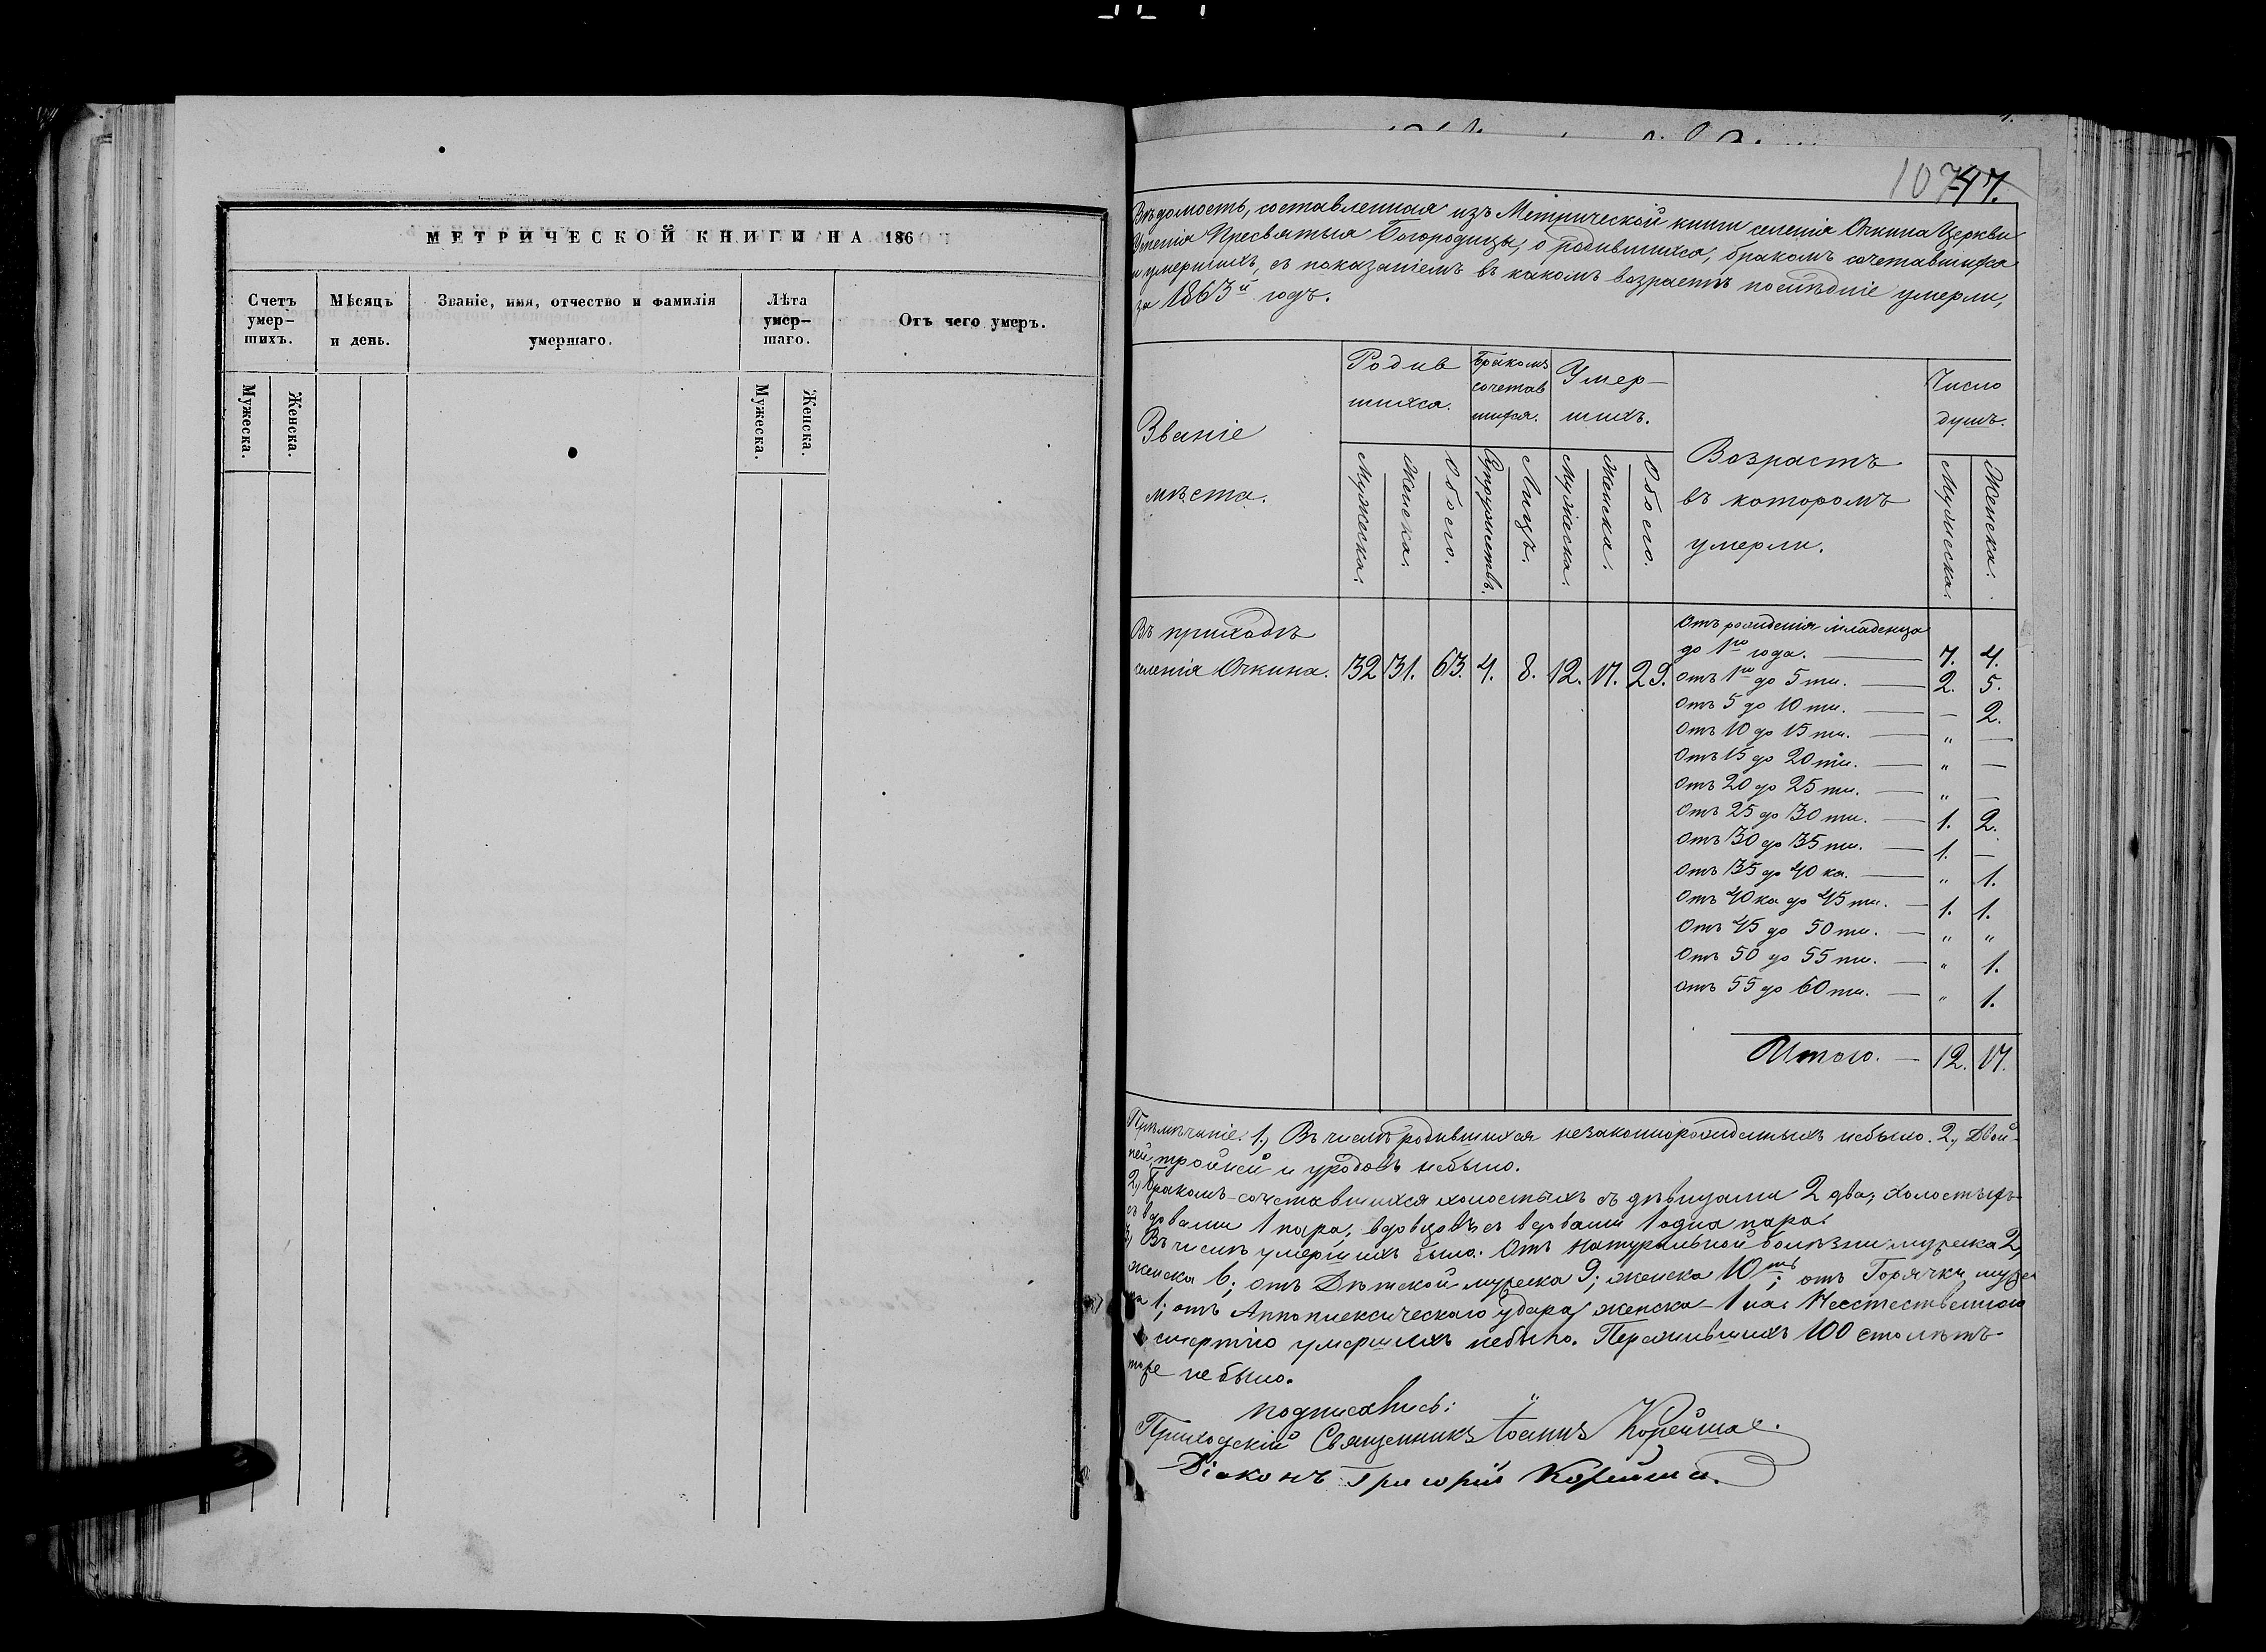 МЕТРИЧЕСКОЙ КНИГИ НА 186
Счетъ умер-шихъ.
Мѣсяцъ и день.
Званіе, имя, отчество и фамилія умершаго.
Лѣта умер-шаго.
Отъ чего умеръ.
Мужеска.
Женска.
Мужеска.
Женска.
107 47.
Вѣдомость, составленная изъ Метрической книги селенія Очкина Церкви
Успенія Пресвятыя Богородицы, о родившихся, бракомъ сочетавшихся
и умершихъ, съ показаніемъ въ какомъ возрастѣ послѣдніе умерли,
за 1863й годъ.
Званіе мѣста.
Родившихся.
Бракомъ сочетавшихся.
Умер-шихъ.
Возрастъ въ которомъ умерли.
Число душъ.
Мужеска.
Женска.
Обоего.
Супружествъ.
Лицъ.
Мужеска.
Женска.
Обоего.
Мужеска.
Женска.
Въ приходѣ
селенія Очкина. 32 31. 63. 4. 8. 12. 17. 29.
Отъ рожденія младенца
до 1го года. — 7. 4.
Отъ 1го до 5ти. — 2. 5.
Отъ 5 до 10ти. — — 2.
Отъ 10 до 15ти. — " —
Отъ 15 до 20ти. — " —
Отъ 20 до 25ти. — " —
Отъ 25 до 30ти. — 1. 2.
Отъ 30 до 35ти. — 1. —
Отъ 35 до 40ка. — " 1.
Отъ 40ка до 45ти. — 1. 1.
Отъ 45 до 50ти. — " "
Отъ 50 до 55ти. — " 1.
Отъ 55 до 60ти. — " 1.
Итого. — 12. 17.
Примѣчаніе. 1) Въ числѣ родившихся незаконнорожденныхъ небыло. 2) Двой-
ней, тройней и уродовъ небыло.
2) Бракомъ сочетавшихся холостыхъ съ дѣвицами 2 два, холостыхъ
съ вдовами 1 пара, вдовцовъ съ вдовами 1 одна пара.
3) Въ числѣ умершихъ было: Отъ натуральной болѣзни мужеска 2,
женска 6; отъ Дѣтской мужеска 9; женска 10ть; отъ Горячки муже
ка 1; отъ Аппоплексическаго удара женска 1на. Неестественною
смертію умершихъ небыло. Пережившихъ 100 столѣтъ
тоже небыло.
подписались:
Приходскій Священникъ Іоаннъ Корейша.
Діаконъ Григорій Корейша.